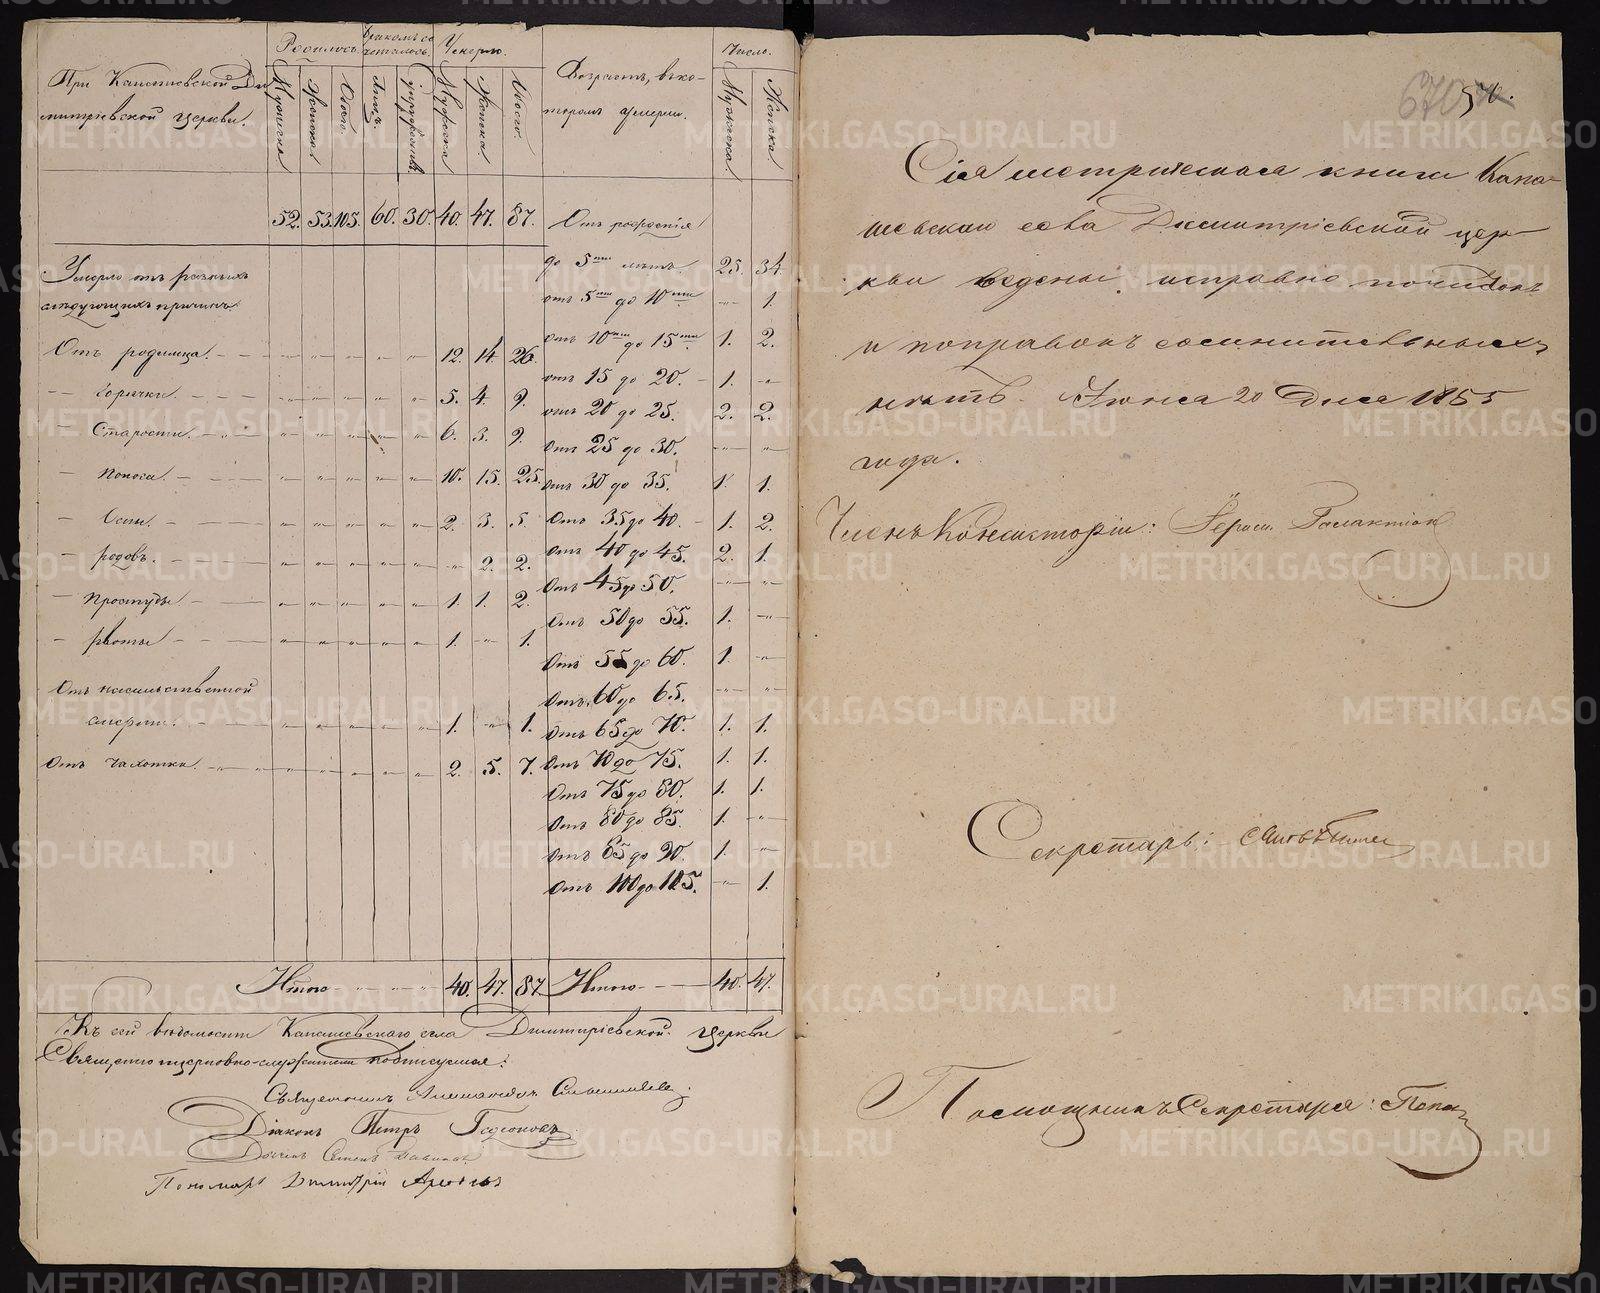 При Капашевской Ди
митріевской церкви.
Родилось.
Бракомъ со
четалось.
Умерло.
Возрастъ, въ ко-
торомъ умерли.
Число.
Мужеска
Женска
Обоего.
Лицъ.
Супружествъ
Мужеска
Женска
Итого.
Мужеска.
Женска.
52. 53. 105. 60. 30. 40. 47. 87.
Отъ рожденія
до 5ти лѣтъ. 25. 34.
Умерло отъ разныхъ
слѣдующихъ причинъ:
отъ 5ти до 10ти — 1.
отъ 10ти до 15ти 1. 2.
отъ 15 до 20. 1. —
отъ 20 до 25. 2. 2.
Отъ 25 до 30. — —
Отъ 30 до 35. 1. 1.
Отъ 35 до 40. 1. 2.
Отъ 40 до 45. 2. 1.
Отъ 45 до 50. — —
Отъ 50 до 55. 1. —
Отъ 55 до 60. 1. —
Отъ 60 до 65. — —
Отъ 65 до 70. 1. 1.
Отъ 70 до 75. 1. 1.
Отъ 75 до 80. 1. 1.
Отъ 80 до 85. 1. —
Отъ 85 до 90. 1. —
Отъ 100 до 105. — 1.
Отъ родимца. 12. 14. 26.
— Горячки. 5. 4. 9.
— Старости. 6. 3. 9.
— Поноса. 10. 15. 25.
— Оспы. 2. 3. 5.
— родовъ. — 2. 2.
— Простуды 1. 1. 2.
— рвоты 1. — 1.
Отъ насильственной
смерти. 1. — 1.
Отъ чахотки. 2. 5. 7.
Итого 40. 47. 87. Итого 40. 47.
Къ сей вѣдомости Капашевскаго села Димитріевской церкви
Священноцерковно-служители подписуемся:
Священникъ Александръ
Діаконъ Петръ
Дьячекъ Семенъ
Пономарь Димитрій
670 570.
Сія метрическая книга Капа-
шевскаго села Димитріевской цер-
кви ведены исправно почистокъ
и поправокъ сомнительныхъ
нѣтъ. Іюня 20 дня 1855
года.
Членъ Консисторіи:
Секретарь:
Помощникъ Секретаря: Попов
METRIKI.GASO-URAL.RU